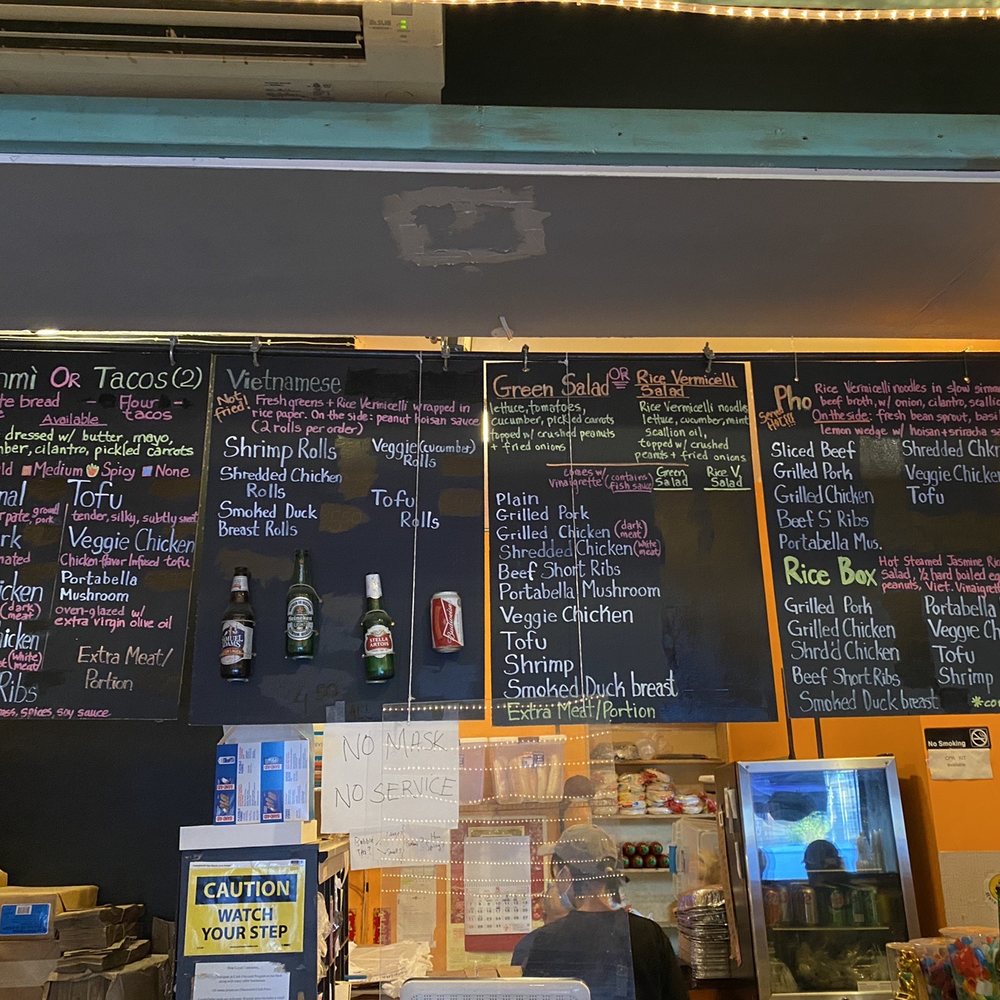 nmì OR TACOS (2)
te bread - Flour -
tacos
Available
dressed w/ butter, mayo,
mber, cilantro, pickled carrots
Medium Spicy None
nal
pate, ground
pork
rk
nated
icken
(dark
meat)
icken
(white
meat)
Ribs
ass, spices, soy sauce
Tofu
tender, silky, subtly sweet
Veggie Chicken
Chicken-flavor Infused tofu
Portabella
Mushroom
oven-glazed w/
extra virgin olive oil
Extra Meat/
Portion
Vietnamese
Not
fried!
Fresh greens + Rice Vermicelli wrapped in
rice paper. On the side: peanut hoisan sauce
(2 rolls per order)
Shrimp Rolls
Shredded Chicken
Rolls
Smoked Duck
Breast Rolls
Veggie (cucumber)
Rolls
Tofu
Rolls
SAMUEL ADAMS
Heineken
STELLA ARTOIS
Budweiser
4.99
Green Salad OR Rice Vermicelli
Salad
lettuce, tomatoes,
cucumber, pickled carrots
topped w/ crushed peanuts
+ fried onions
Rice Vermicelli noodles
lettuce, cucumber, mint
scallion oil,
topped w/ crushed
peanuts + fried onions
comes w/
Vinaigrette (contains
fish sauce)
Green
Salad
Rice V.
Salad
Plain
Grilled Pork
Grilled Chicken (dark
meat)
Shredded Chicken (white
meat)
Beef Short Ribs
Portabella Mushroom
Veggie Chicken
Tofu
Shrimp
Smoked Duck breast
Extra Meat/Portion
Pho
Served
HOT!!!
Rice Vermicelli noodles in slow simm
beef broth, w/ onion, cilantro, scallio
On the side: fresh bean sprout, basi
lemon wedge w/ hoisan + sriracha sa
Sliced Beef
Grilled Pork
Grilled Chicken
Beef S' Ribs
Portabella Mus.
Shredded Chkn
Veggie Chicken
Tofu
Rice Box
Hot Steamed Jasmine Ric
Salad, ½ hard boiled eg
peanuts, Viet. Vinaigre
Grilled Pork
Grilled Chicken
Shrd'd Chicken
Beef Short Ribs
Smoked Duck breast
Portabella
Veggie Ch
Tofu
Shrimp
*co
NO MASK
NO SERVICE
No Smoking
CPR KIT
CAUTION
WATCH
YOUR STEP